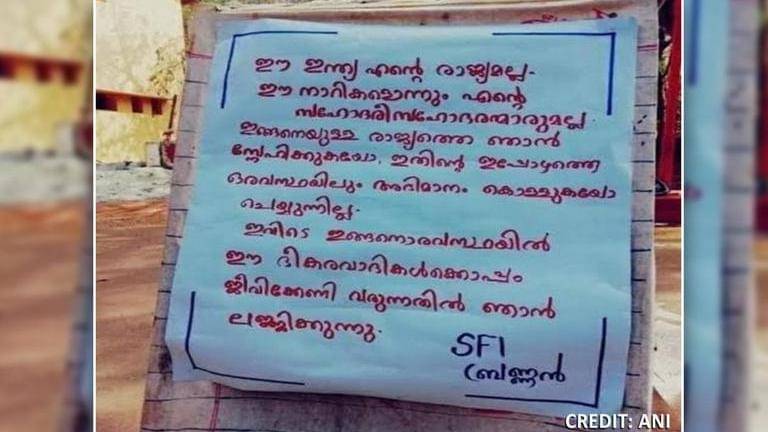 ഈ ഇന്ത്യ എന്റെ രാജ്യമല്ല.
ഈ നാറികളൊന്നും എന്റെ
സഹോദരീസഹോദരന്മാരുമല്ല.
ഇങ്ങനെയുള്ള രാജ്യത്തെ ഞാൻ
സ്നേഹിക്കുകയോ, ഇതിന്റെ ഇപ്പോഴത്തെ
ഒരവസ്ഥയിലും അഭിമാനം കൊള്ളുകയോ
ചെയ്യുന്നില്ല.
ഇവിടെ ഇങ്ങനൊരവസ്ഥയിൽ
ഈ ഭീകരവാദികൾക്കൊപ്പം
ജീവിക്കേണി വരുന്നതിൽ ഞാൻ
ലജ്ജിക്കുന്നു.
SFI
ബ്രണ്ണൻ
CREDIT: ANI